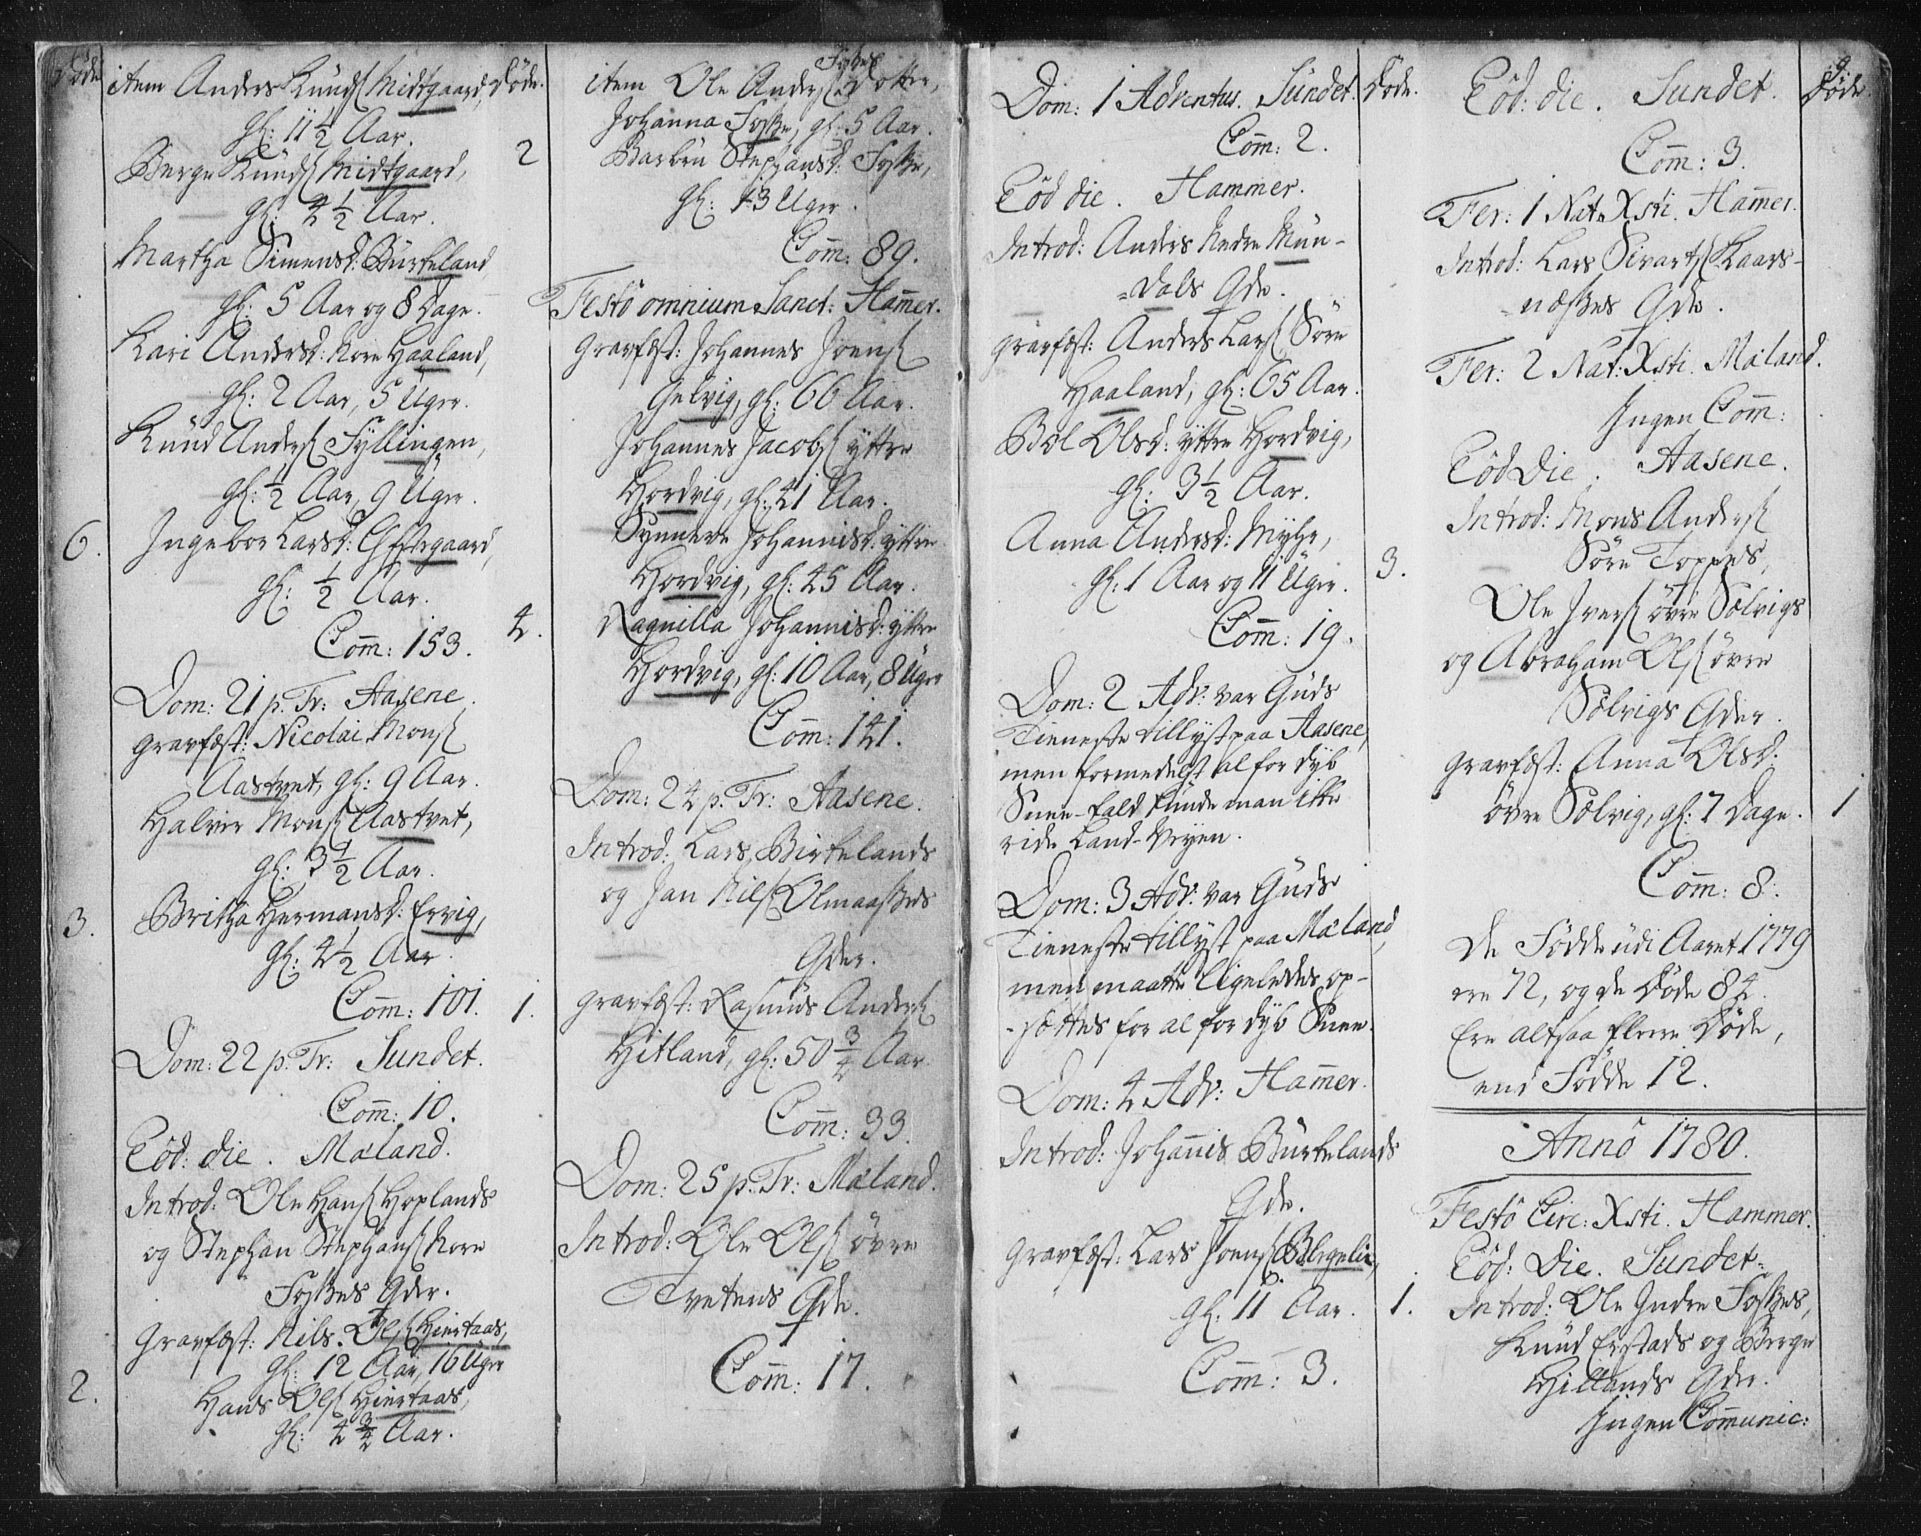 Døde
item Anders Knuds: Midtgaard,
gl: 11 1/2 Aar.
Berge Knuds: Midtgaard,
gl: 4 1/2 Aar.
Martha Simensd: Bürkeland
gl: 5 Aar og 8 Dage.
Kari Andersd: Nore Haaland,
gl: 2 Aar, 5 Uger.
Knud Anders: Fyllingen,
gl: 1/2 Aar, 9 Uger.
6. Ingebor Larsd: Eftergaard,
gl: 1/2 Aar.
Com: 153.
Dom: 21 p. Tr: Aasene.
gravfæst: Nicolai Mons:
Aastvet, gl: 9 Aar.
Halvor Mons: Aastvet,
gl: 3 1/2 Aar.
3. Britha Hermansd: Ervig,
gl: 4 1/2 Aar.
Com: 101.
Dom: 22 p. Tr: Sundet.
Com: 10.
Eod: die. Mæland.
Introd: Ole Hans: Hoplands
og Stephan Stephans: Nore
Foskes Qder.
gravfæst: Nils Ols: Hiertaas,
gl: 12 Aar, 16 Uger
2. Hans Ols: Hiertaas,
gl: 4 3/4 Aar.
Døde.
item Ole Anders: Foskes Dotter,
Johanna Foske, gl: 5 Aar.
2 Barbru Stephansd: Foske,
gl: 13 Uger.
Com: 89.
Festo omnium Sanct: Hammer.
gravfæst: Johannes Joens:
Gelvig, gl: 66 Aar.
Johannes Jacobs: yttre
Hordvig, gl: 41 Aar.
Synneve Johannisd: yttre
Hordvig, gl: 45 Aar.
4. Ragnilla Johannisd: yttre
Hordvig, gl: 10 Aar, 8 Uger
Com: 141.
Dom: 24 p. Tr: Aasene.
Introd: Lars Birkelands
og Jan Nils: Olmaaskes
Qder.
1. gravfæst: Rasmus Anders:
Hitland, gl: 50 3/4 Aar.
Com: 33.
Dom: 25 p. Tr: Mæland.
Introd: Ole Ols: övre
Tvetens Qde.
Com: 17.
Dom: 1 Adventus. Sundet.
Com: 2.
Eod die. Hammer.
Introd: Anders Nedre Mün-
=dals Qde.
gravfæst: Anders Lars: Söre
Haaland, gl: 65 Aar.
Böl Olsd: yttre Hordvig,
gl: 3 1/2 Aar.
Anna Andersd: Myhr,
gl: 1 Aar og 11 Uger.
Com: 19.
Dom: 2 Adv: var Guds
Tieneste tillyst paa Aasene,
men formedelst al for dyb
Snee-fald kunde man ikke
ride Land-Veyen.
Dom: 3 Adv: var Guds
Tieneste tillyst paa Mæland,
men maatte ligeledes op-
-sættes for al for dyb Snee.
Dom: 4 Adv: Hammer.
Introd: Johannis Bürkelands
Qde.
gravfæst: Lars Joens:
gl: 11 Aar.
Com: 3.
Døde.
3.
1.
Eod: die. Sundet.
Com: 3.
Fer: 1 Nat: Xsti. Hammer.
Introd: Lars Sivarts: Kaars-
-næsses Qde.
Fer: 2 Nat: Xsti. Mæland.
Ingen Com:
Eod Die. Aasene.
Introd: Mons Anders:
Söre Toppes,
Ole Ivers: övre Sölvigs
og Abraham Ols: övre
Sölvigs Qder.
gravfæst: Anna Olsd:
övre Sölvig, gl: 7 Dage.
Com: 8.
De Fødde udi Aaret 1779
ere 72, og de Døde 84.
Ere altsaa flere Døde,
end Fødde 12.
Anno 1780.
Festo Circ: Xsti. Hammer.
Eod: Die. Sundet.
Introd: Ole Indre Foskes,
Knud Erstads og Berge
Hillands Qder.
Ingen Communic:
Døde
1